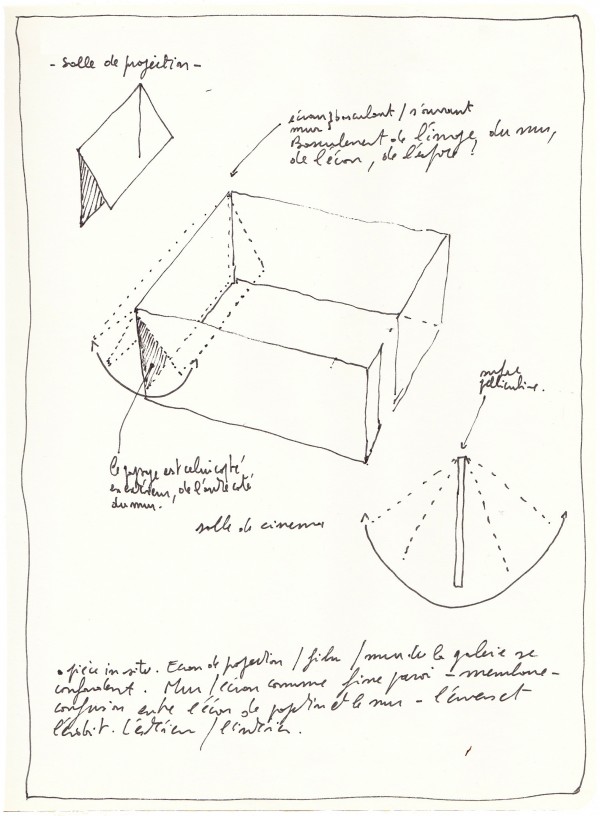 - salle de projection -
écran basculant / s'ouvrant
mur
Basculement de l'image, du mur,
de l'écran, de l'espace ?
surface
pelliculaire.
le paysage est celui côté
extérieur, de l'autre côté
du mur.
salle de cinema
• pièce in situ. Ecran de projection / film / mur de la galerie se
confondent. Mur / écran comme fine paroi - membrane -
confusion entre l'écran de projection et le mur - l'envers et
l'endroit. L'extérieur / l'intérieur.